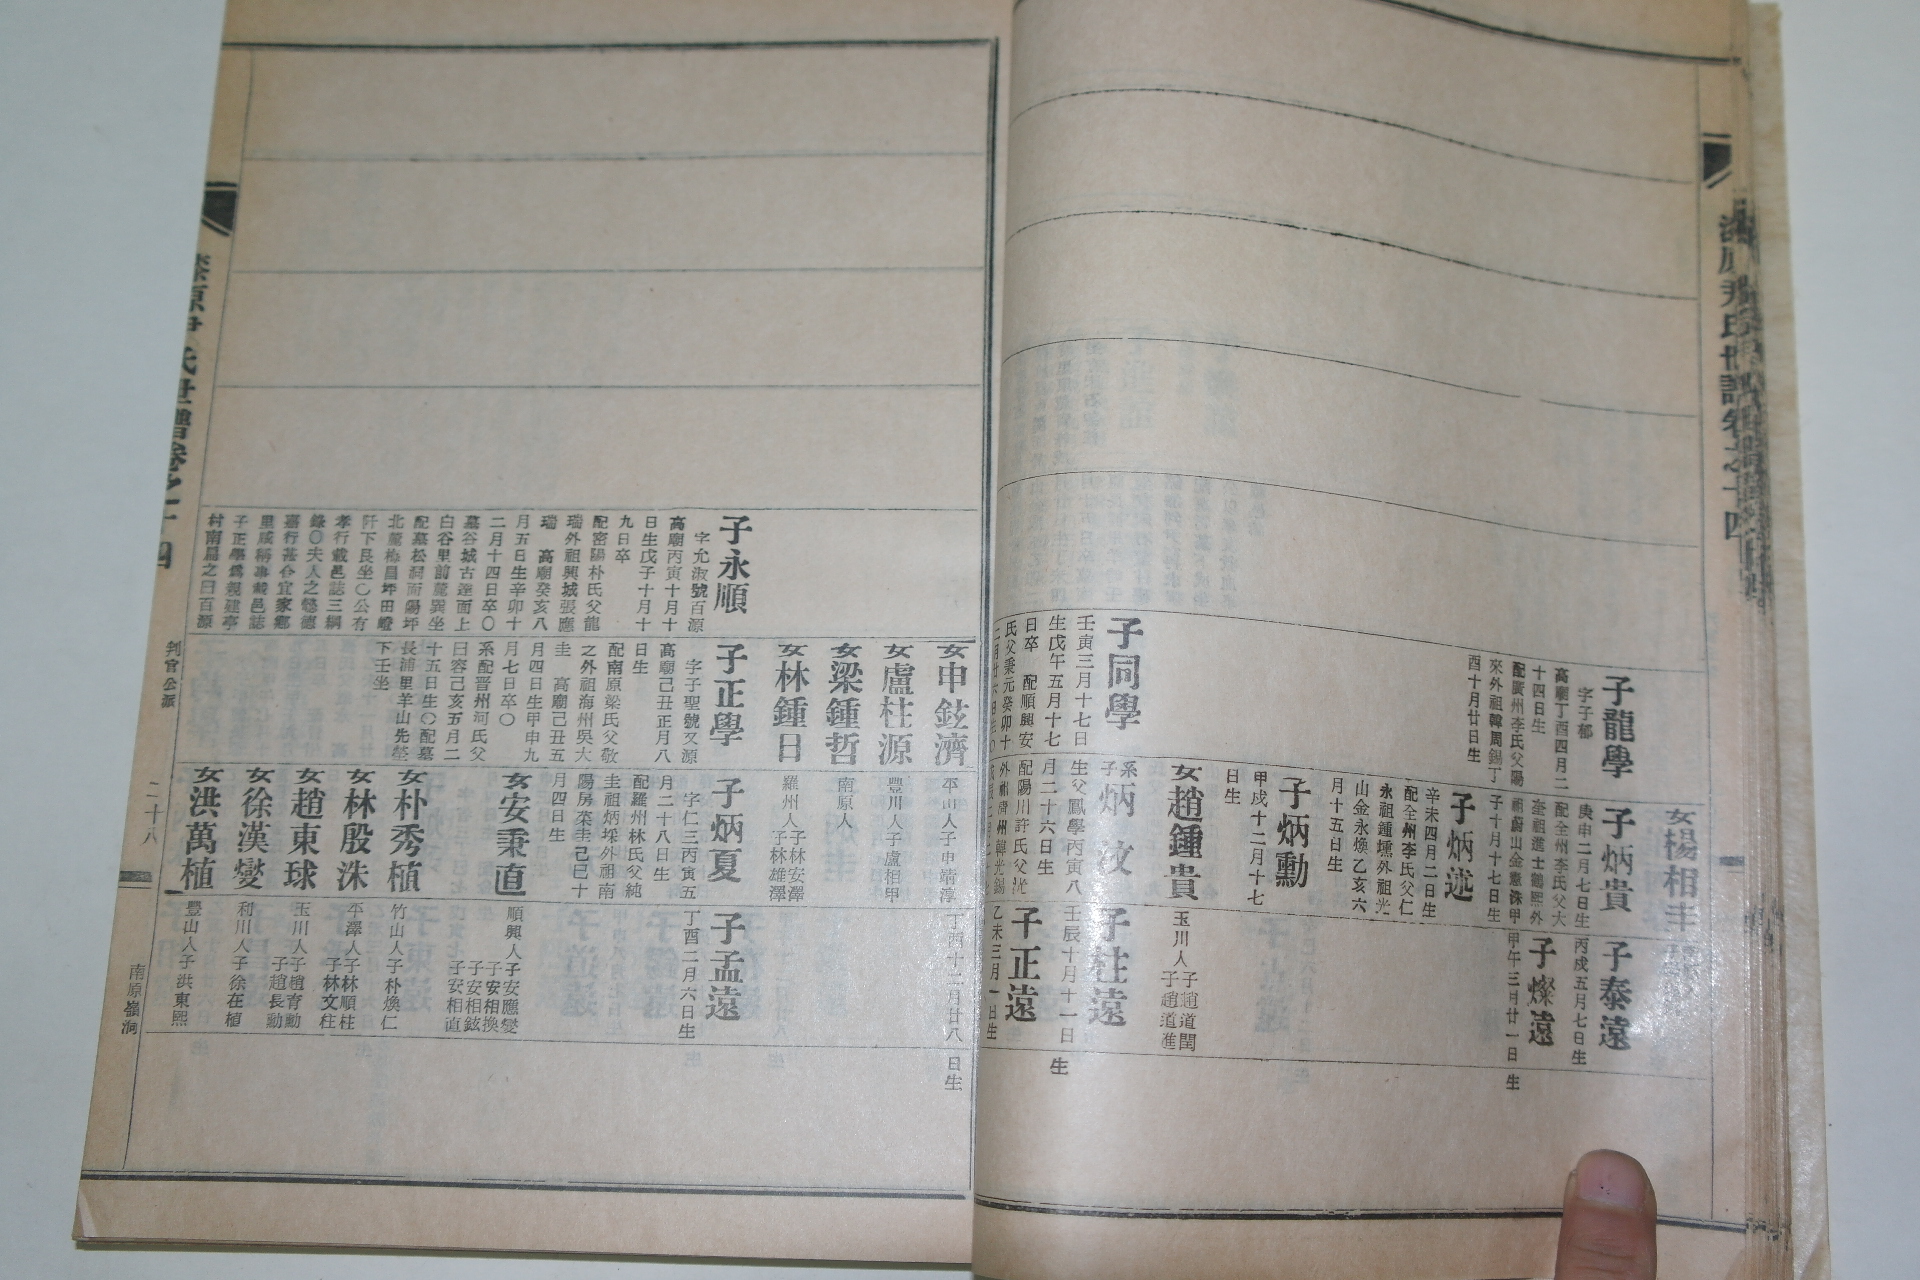 子龍學
字子郁
高廟丁酉四月二
十四日生
配廣州李氏父陽
來外祖韓周錫丁
酉十月廿日生
女楊相丰
子炳貴
庚申二月七日生
配全州李氏父大
奎祖進士鶴熙外
祖蔚山金憲洙甲
子十月十七日生
子泰遠
丙戌五月七日生
子燦遠
甲午三月廿一日生
子炳述
辛未四月二日生
配全州李氏父仁
永祖鍾壎外祖光
山金永煥乙亥六
月十五日生
子炳勳
甲戌十二月十七
日生
女趙鍾貴
玉川人子趙道閏
子趙道進
子同學
壬寅三月十七日
生戊午五月十七
日卒 配順興安
氏父秉元癸卯十
系子炳汶
生父鳳學丙寅八
月二十六日生
配陽川許氏父
子柱遠
壬辰十月十一日生
子正遠
乙未三月一日生
女申鉉濟
平山人子申靖淳
丁酉十二月廿八日生
女盧柱源
豐川人子盧相甲
女梁鍾哲
南原人
女林鍾日
羅州人子林安澤
子林雄澤
子永順
字允淑號百源
高廟丙寅十月十
日生戊子十月十
九日卒
配密陽朴氏父龍
瑞外祖興城張應
瑞 高廟癸亥八
月五日生辛卯十
二月十四日卒〇
墓谷城古達面上
白谷里前麓巽坐
配墓松洞面陽坪
北麓梅昌坪田嶝
阡下艮坐〇公有
孝行載邑誌三綱
錄〇夫人之懿德
嘉行甚合宜家鄉
里咸稱事載邑誌
子正學爲親建亭
村南扁之曰百源
子正學
字子聖號又源
高廟己丑正月八
日生
配南原梁氏父敬
之外祖海州吳大
圭 高廟己丑五
月四日生甲申九
月七日卒〇
系配晋州河氏父
曰容己亥五月二
十五日生〇配墓
長浦里羊山先塋
下壬坐
子炳夏
字仁三丙寅五
月二十八日生
配羅州林氏父純
圭祖炳埰外祖南
陽房菜圭己巳十
月四日生
子孟遠
丁酉二月六日生
女安秉直
順興人子安應燮
子安相換
子安相鉉
子安相直
女朴秀植
竹山人子朴煥仁
女林殷洙
平澤人子林順柱
子林文柱
女趙東球
玉川人子趙育勳
子趙長勳
女徐漢燮
利川人子徐在植
女洪萬植
豐山人子洪東熙
漆原尹氏世譜卷之十四
判官公派
二十八
南原嶺洞